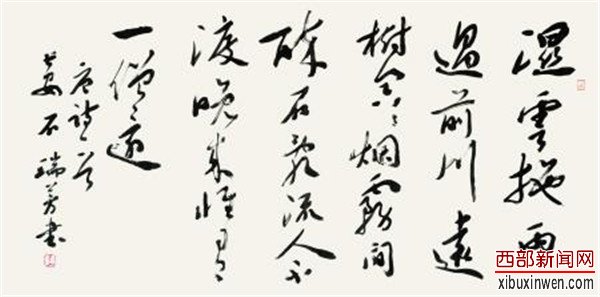 濕雲拖雨
過前川遠
樹冥冥烟霧間
碎石亂流人不
渡晚來惟有
一僧還
唐詩一首
石瑞芳書
西部新闻网
xibuxinwen.com